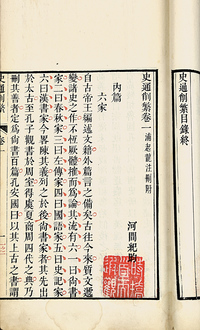 史通削繁目錄終
史通削繁卷一 浦起龍注刪附
河間紀昀
內篇
六家
自古帝王編述文籍外篇言之備矣古往今來質文遞
變諸史之作不恆厥體榷而為論其流有六一曰尚書
家二曰春秋家三曰左傳家四曰國語家五曰史記家
六曰漢書家今畧陳其義列之於後尚書家者其先出
於太古至孔子觀書於周室得虞夏商周四代之典乃
刪其善者定為尚書百篇孔安國曰以其上古之書謂
史通削繁 卷一 一